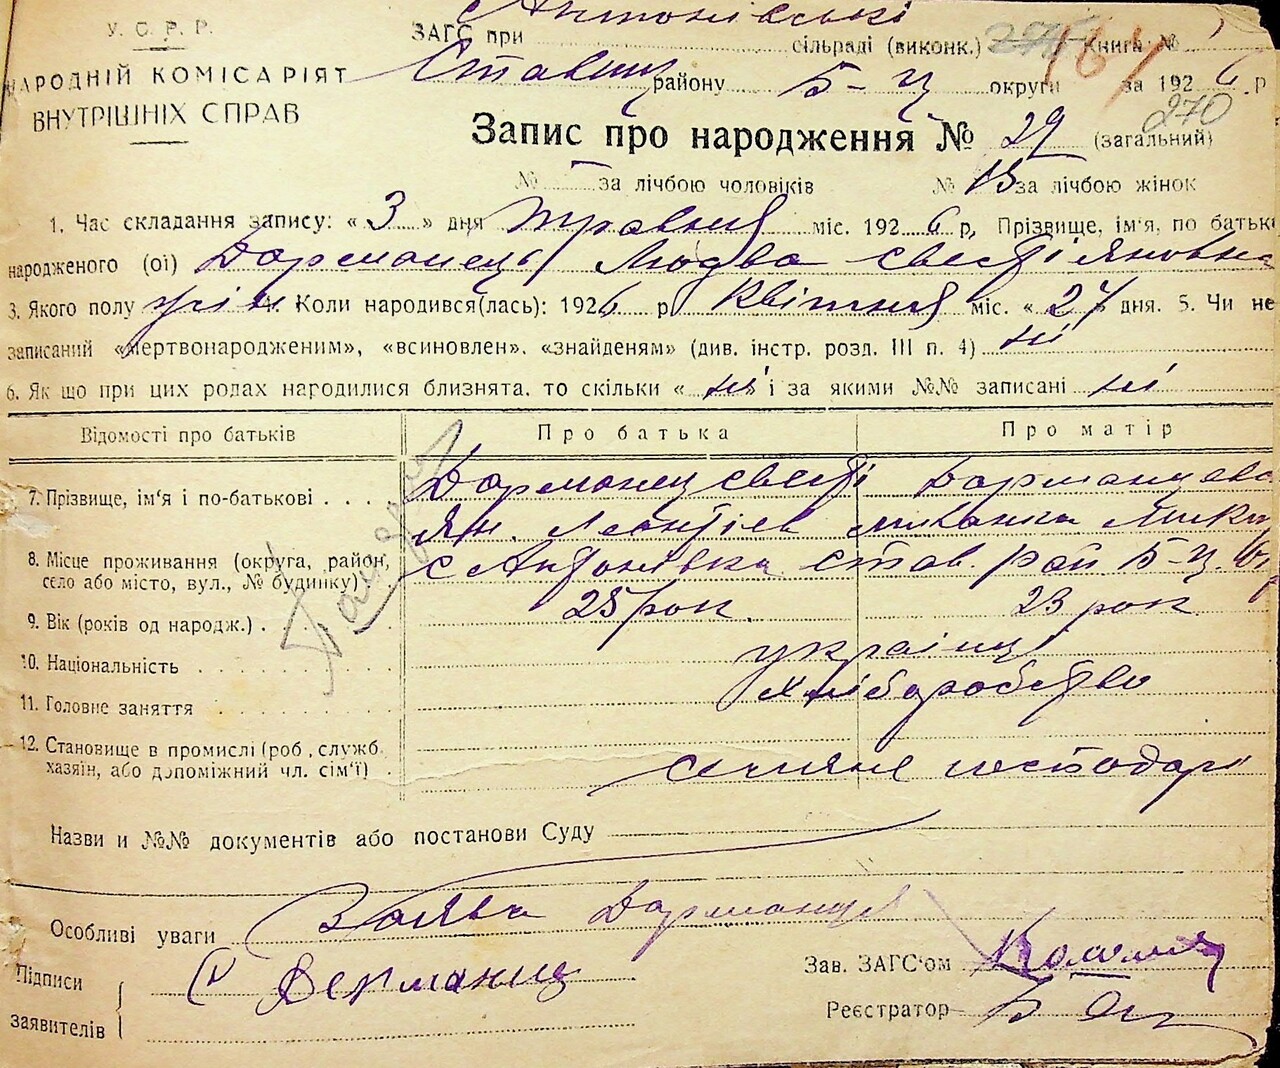 У. С. Р. Р.
НАРОДНІЙ КОМІСАРІЯТ
ВНУТРІШНІХ СПРАВ
ЗАГС при Антонівські сільраді (виконк.) Книга №
Ставищ району Б-Ц округи за 1926 р
270
Запис про народження № 29 (загальний)
№ – за лічбою чоловіків № 15 за лічбою жінок
1. Час складання запису: « 3 » дня травня міс. 1926 р, Прізвище, ім'я, по батьк
народженого (ої) Дорманець Людва Севестіяновна
3. Якого полу жін 4. Коли народився(лась): 1926 р Квітня міс. « 27 » дня. 5. Чи не
записаний «мертвонародженим», «всиновлен». «знайденям» (див. інстр. розд. III п. 4) ні
6. Як що при цих родах народилися близнята. то скільки « ні » і за якими №№ записані ні
Відомості про батьків Про батька Про матір
7. Прізвище, ім'я і по-батькові Дорманец Севесті Дорманцева
Ян. Леонтіев
8. Місце проживання (округа, район, село або місто, вул., № будинку) с Антонівка Став. рай Б-Ц.
9. Вік (років од народж.) 25 рок 23 рок
10. Національність українці
11. Головне заняття Хліборобство
12. Становище в промислі (роб, служб. хазяїн, або допоміжний чл. сім'ї) селяне господарі
Назви и №№ документів або постанови Суду
Особливі уваги Заява Дорманця
Підписи заявителів С Дерманиц
Зав. ЗАГС'ом
Реєстратор